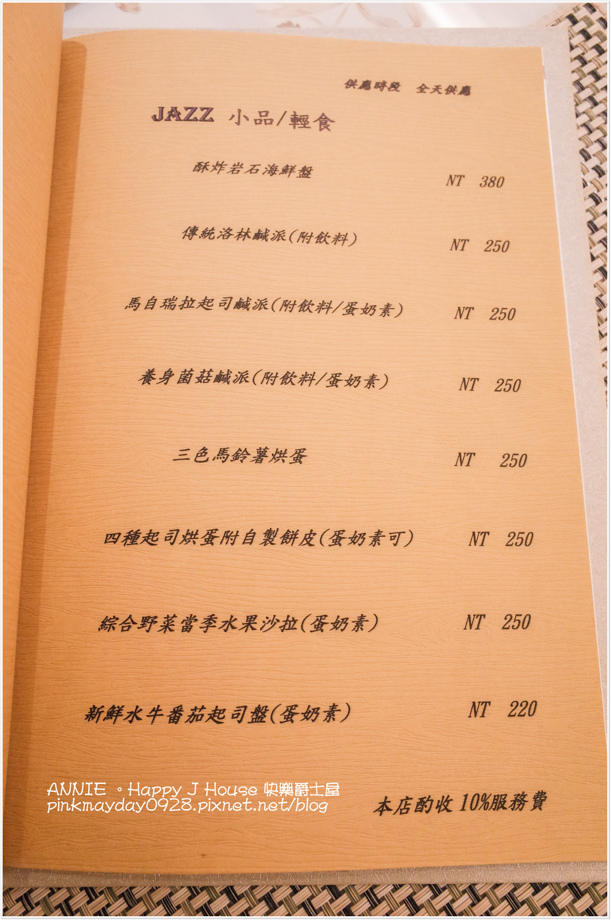 供應時段 全天供應
JAZZ 小品/輕食
酥炸岩石海鮮盤 NT 380
傳統洛林鹹派(附飲料) NT 250
馬自瑞拉起司鹹派(附飲料/蛋奶素) NT 250
養身菌菇鹹派(附飲料/蛋奶素) NT 250
三色馬鈴薯烘蛋 NT 250
四種起司烘蛋附自製餅皮(蛋奶素可) NT 250
綜合野菜當季水果沙拉(蛋奶素) NT 250
新鮮水牛番茄起司盤(蛋奶素) NT 220
ANNIE 。Happy J House 快樂爵士屋
pinkmayday0928.pixnet.net/blog
本店酌收10%服務費